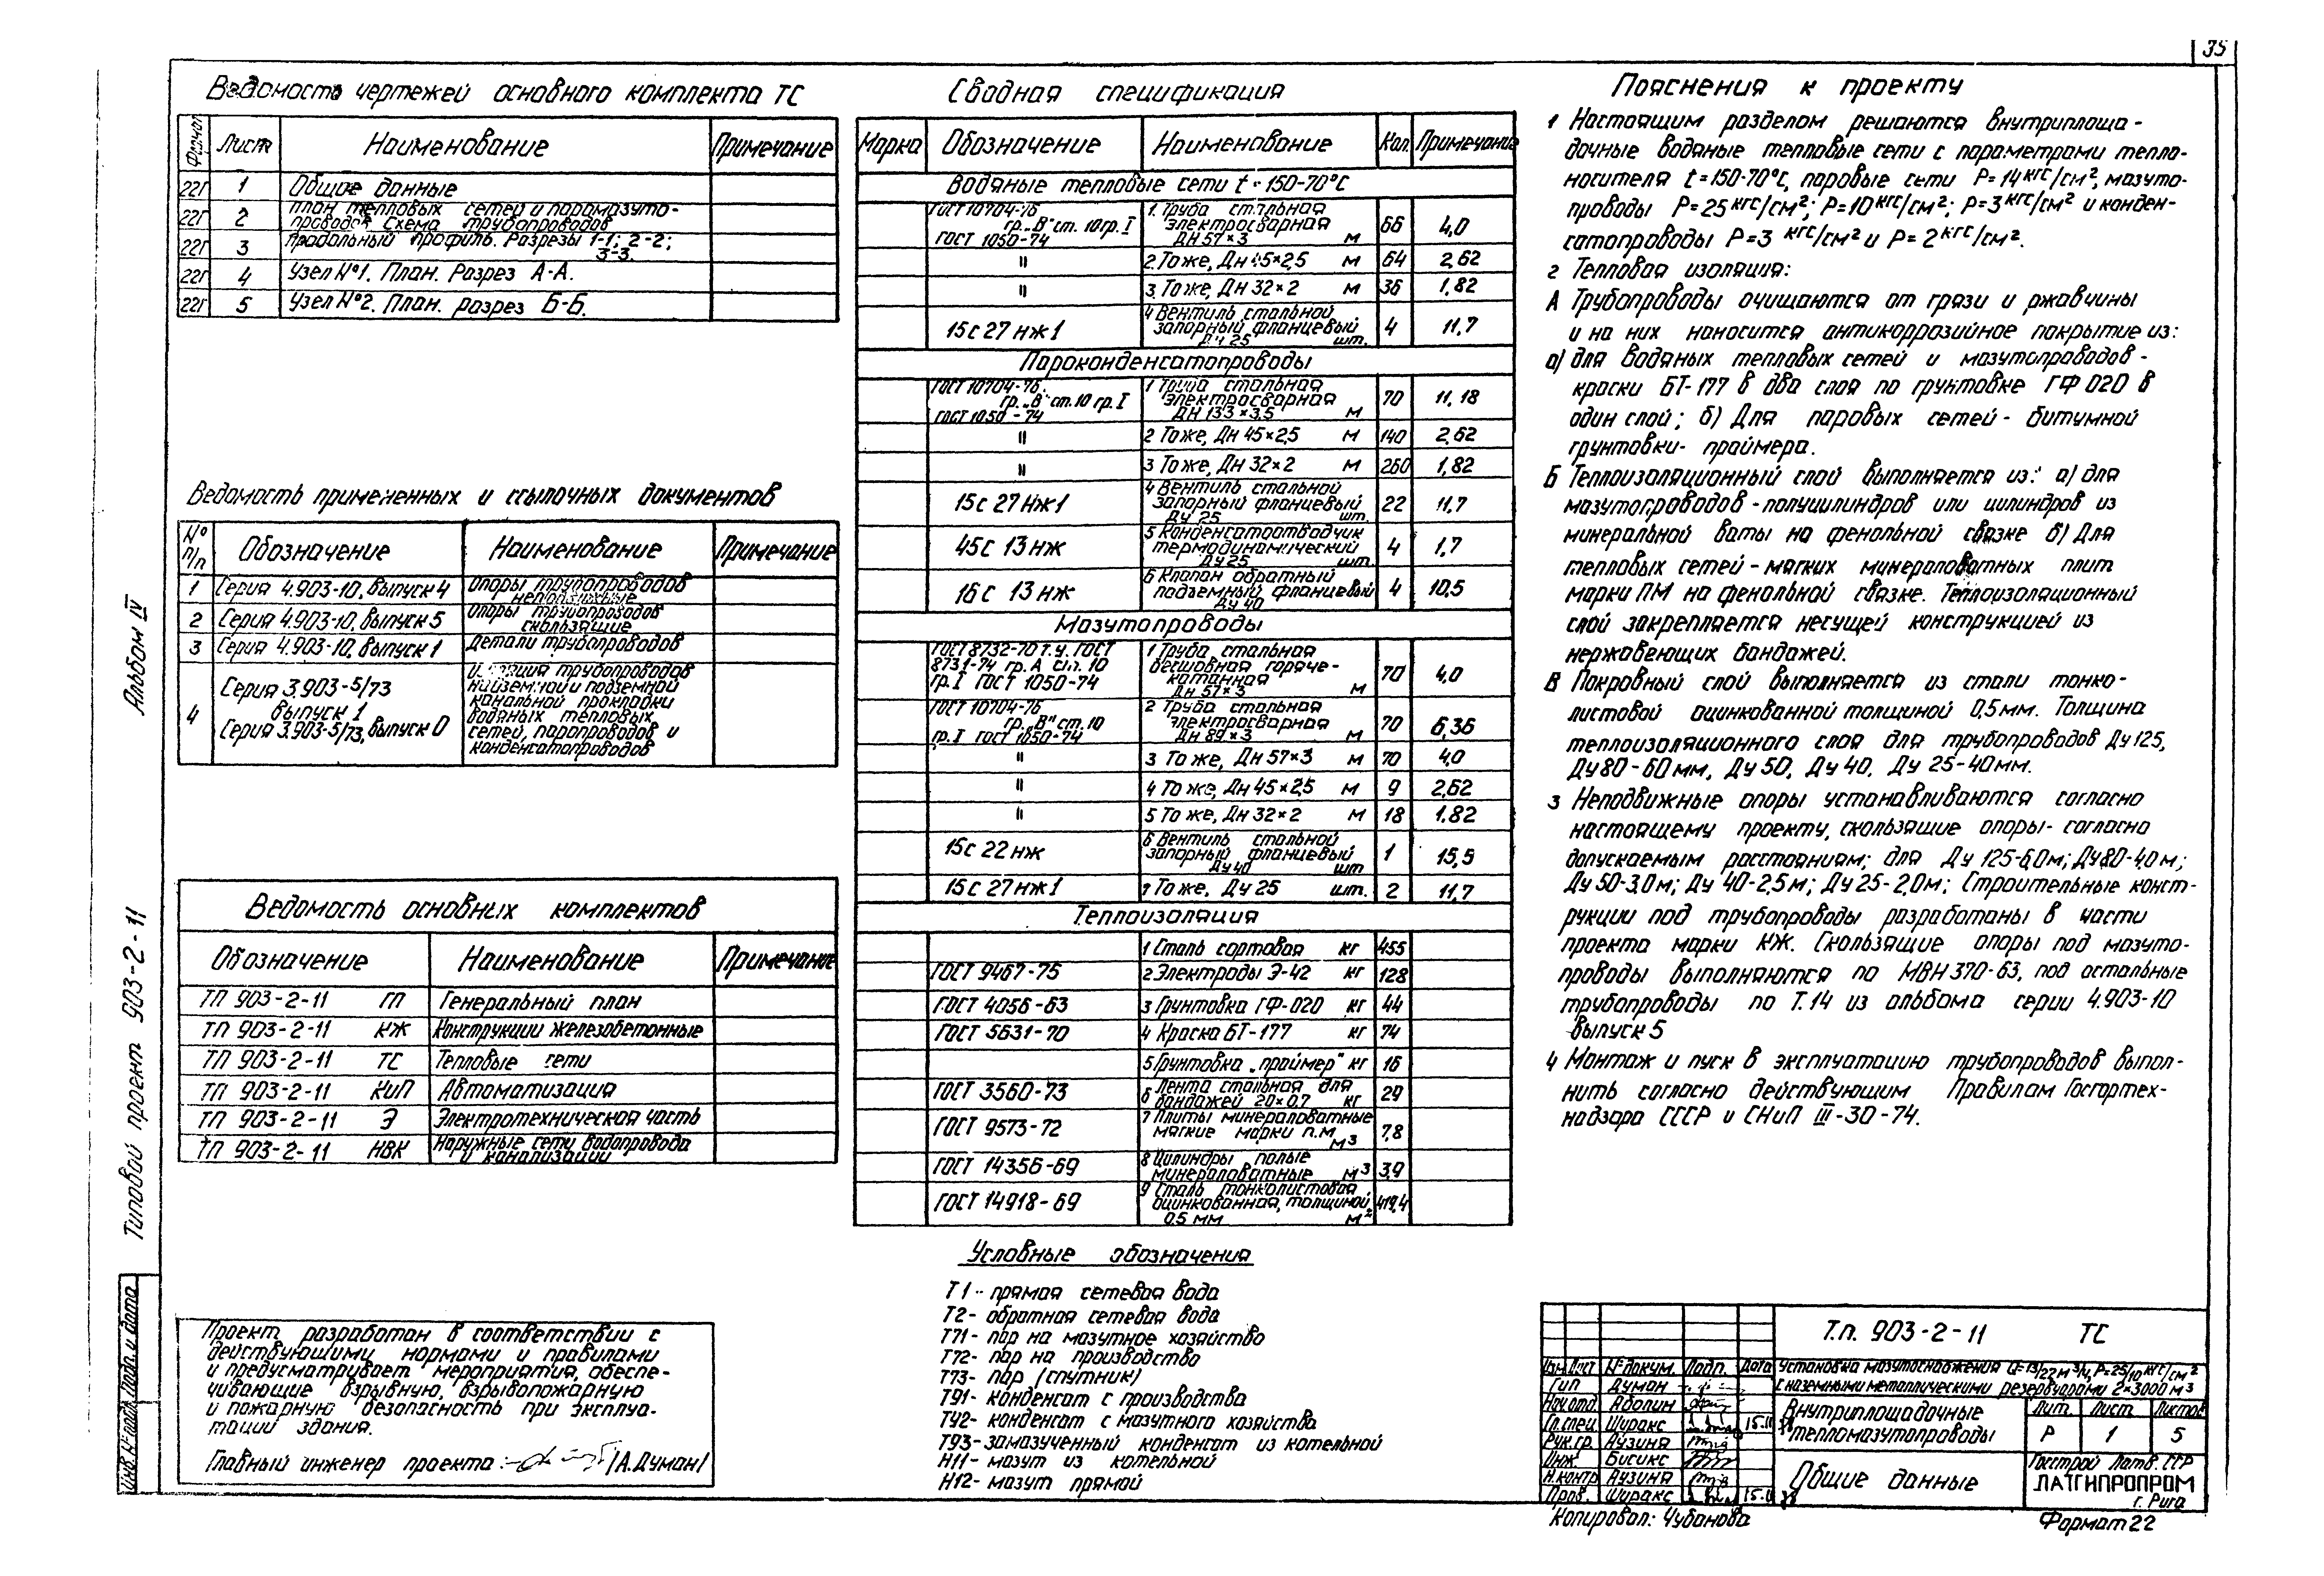 35
Ведомость чертежей основного комплекта ТС
Формат Лист Наименование Примечание
22Г 1 Общие данные
22Г 2 План тепловых сетей и паромазуто-
проводов Схема трубопроводов
22Г 3 Продольный профиль. Разрезы 1-1; 2-2;
3-3.
22Г 4 Узел №1. План. Разрез А-А.
22Г 5 Узел №2. План. разрез Б-Б.
Ведомость примененных и ссылочных документов
№ п/п Обозначение Наименование Примечание
1 Серия 4.903-10, выпуск 4 Опоры трубопроводов
неподвижные
2 Серия 4.903-10, выпуск 5 Опоры трубопроводов
скользящие
3 Серия 4.903-10, выпуск 1 Детали трубопроводов
4 Серия 3.903-5/73
выпуск 1
Серия 3.903-5/73, выпуск 0
трубопроводов
надземной и подземной
канальной прокладки
водяных тепловых
сетей, паропроводов и
конденсатопроводов
Ведомость основных комплектов
Обозначение Наименование Примечание
ТП 903-2-11 ГП Генеральный план
ТП 903-2-11 КЖ Конструкции железобетонные
ТП 903-2-11 ТС Тепловые сети
ТП 903-2-11 КиП Автоматизация
ТП 903-2-11 Э Электротехническая часть
ТП 903-2-11 НВК Наружные сети водопровода
и канализации
Проект разработан в соответствии с
действующими нормами и правилами
и предусматривает мероприятия, обеспе-
чивающие взрывную, взрывопожарную
и пожарную безопасность при эксплуа-
тации здания.
Главный инженер проекта: /А.Думан/
Сводная спецификация
Марка Обозначение Наименование Кол. Примечание
Водяные тепловые сети t-150-70°С
ГОСТ 10704-76
гр. „В" ст. 10 гр. I
ГОСТ 1050-74
1. Труба стальная
электросварная
ДН 57×3 м 66 4,0
" 2. То же, Дн 45×2,5 м 64 2,62
" 3. То же, Дн 32×2 м 36 1,82
15с 27 нж 1 4 Вентиль стальной
запорный фланцевый
Ду 25 шт. 4 11,7
Пароконденсатопроводы
ГОСТ 10704-76.
гр. „В" ст. 10 гр. I
ГОСТ 1050-74
1 Труба стальная
электросварная
ДН 133×3,5 м 70 11,18
" 2 То же, Дн 45×2,5 м 140 2,62
" 3 То же, Дн 32×2 м 260 1,82
15с 27 Нж 1 4 Вентиль стальной
запорный фланцевый
Ду 25 шт. 22 11,7
45с 13 нж 5 Конденсатоотводчик
термодинамический
Ду 25 шт. 4 1,7
16с 13 нж 6 Клапан обратный
подъемный фланцевый
Ду 40 4 10,5
Мазутопроводы
ГОСТ 8732-70 т.у. ГОСТ
8731-74 гр. А ст. 10
гр. I ГОСТ 1050-74
1 Труба стальная
бесшовная горяче-
катанная
Дн 57×3 м 70 4,0
ГОСТ 10704-76
гр. „В" ст. 10
гр. I ГОСТ 1050-74
2 Труба стальная
электросварная
Дн 89×3 м 70 6,36
" 3 То же, Дн 57×3 м 70 4,0
" 4 То же, Дн 45×2,5 м 9 2,62
" 5 То же, Дн 32×2 м 18 1.82
15с 22 нж 6 Вентиль стальной
запорный фланцевый
Ду 40 шт 1 15,5
15с 27 нж 1 7 То же, Ду 25 шт. 2 11,7
Теплоизоляция
1 Сталь сортовая кг 455
ГОСТ 9467-75 2 Электроды Э-42 кг 128
ГОСТ 4056-63 3 Грунтовка ГФ-020 кг 44
ГОСТ 5631-70 4 Краска БТ-177 кг 74
5 Грунтовка „праймер" кг 16
ГОСТ 3560-73 6 Лента стальная для
бандажей 20×0,7 кг 29
ГОСТ 9573-72 7 Плиты минераловатные
мягкие марки п.м
м³ 7,8
ГОСТ 14356-69 8 Цилиндры полые
минераловатные м³ 3,9
ГОСТ 14918-69 9 Сталь тонколистовая
оцинкованная, толщиной
0,5 мм м² 419,4
Условные обозначения
Т1 - прямая сетевая вода
Т2 - обратная сетевая вода
Т71 - пар на мазутное хозяйство
Т72 - пар на производство
Т73 - пар (спутник)
Т91 - конденсат с производства
Т92 - конденсат с мазутного хозяйства
Т93 - замазученный конденсат из котельной
Н11 - мазут из котельной
Н12 - мазут прямой
Пояснения к проекту
1 Настоящим разделом решаются внутриплоща-
дочные водяные тепловые сети с параметрами тепло-
носителя t=150-70°С, паровые сети Р=14 кгс/см², мазуто-
проводы Р=25 кгс/см²; Р=10 кгс/см²; Р=3 кгс/см² и конден-
сатопроводы Р=3 кгс/см² и Р=2 кгс/см².
2 Тепловая изоляция:
А Трубопроводы очищаются от грязи и ржавчины
и на них наносится антикоррозийное покрытие из:
а) для водяных тепловых сетей и мазутопроводов -
краски БТ-177 в два слоя по грунтовке ГФ 020 в
один слой; б) Для паровых сетей - битумной
грунтовки- праймера.
Б Теплоизоляционный слой выполняется из: а) для
мазутопроводов - полуцилиндров или цилиндров из
минеральной ваты на фенольной связке б) Для
тепловых сетей - мягких минераловатных плит
марки ПМ на фенольной связке. Теплоизоляционный
слой закрепляется несущей конструкцией из
нержавеющих бандажей.
В Покровный слой выполняется из стали тонко-
листовой оцинкованной толщиной 0,5 мм. Толщина
теплоизоляционного слоя для трубопроводов Ду 125,
Ду 80 - 60 мм, Ду 50, Ду 40, Ду 25-40 мм.
3 Неподвижные опоры устанавливаются согласно
настоящему проекту, скользящие опоры - согласно
допускаемым расстояниям; для Ду 125-6,0м; Ду 80-4,0м;
Ду 50-3,0м; Ду 40-2,5м; Ду 25-2,0м; Строительные конст-
рукции под трубопроводы разработаны в части
проекта марки КЖ. Скользящие опоры под мазуто-
проводы выполняются по МВН 370-63, под остальные
трубопроводы по Т.14 из альбома серии 4.903-10
выпуск 5
4 Монтаж и пуск в эксплуатацию трубопроводов выпол-
нить согласно действующим Правилам Госгортех-
надзора СССР и СНиП III-30-74.
Альбом IV
Типовой проект 903-2-11
Инв. № подл. Подп. и дата
Т.п. 903-2-11 ТС
Изм. Лист № докум. Подп. Дата
Установка мазутоснабжения Q=13/22 м³/ч, Р=25/10 кгс/см²
с наземными металлическими резервуарами 2×3000 м³
Гип Думан
Нач. отд Аболин
Гл. спец. Ширакс 15.11
Рук. гр. Аузиня
Инж. Бисикс
Н. контр Аузиня
Пров. Ширакс 15.11
Внутриплощадочные
тепломазутопроводы
Лит. Лист Листов
Р 1 5
Общие данные
Госстрой Латв. ССР
ЛАТГИПРОПРОМ
г. Рига
Копировал: Чубанова
Формат 22